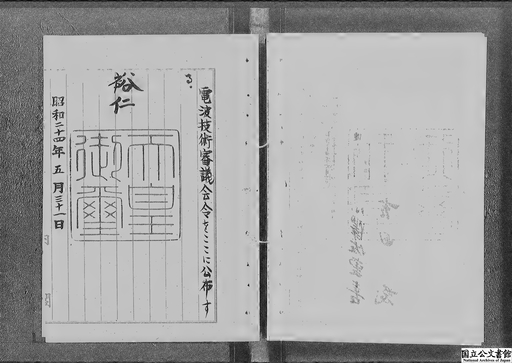 電波技術審議会令をここに公布す
る。
裕仁
天皇
御璽
昭和二十四年五月三十一日
国立公文書館
National Archives of Japan